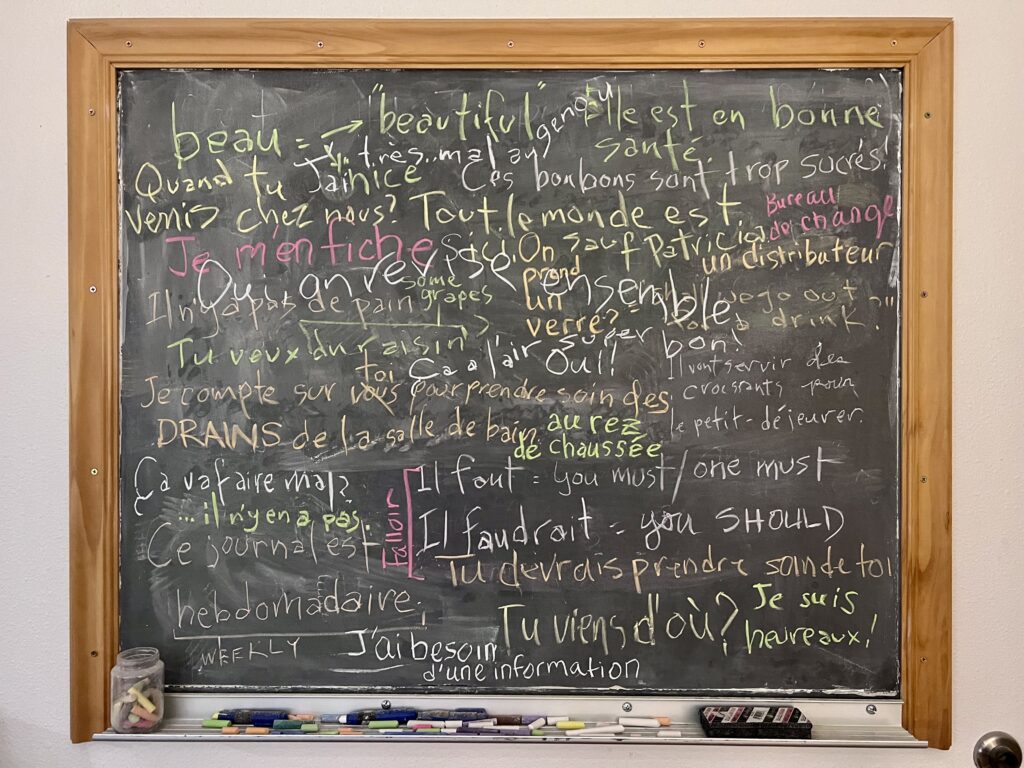 beau = → "beautiful"
nice
J'ai très mal au genou
Elle est en bonne
santé.
Quand tu
venis chez nous?
Ces bonbons sont trop sucrés!
Tout le monde est
ici sauf Patricia.
Bureau
de change
Je m'en fiche
On
prend
un
verre?
un distributeur
Oui, on révise ensemble
Il n'y a pas de pain
some
grapes
go out
a drink?"
Tu veux du raisin
Ça a l'air super bon!
Oui!
Il vont servir des
croissants pour
le petit-déjeurer.
toi
Je compte sur vous pour prendre soin des
DRAINS de la salle de bain.
au rez
de chaussée
Ça va faire mal?
...il n'y en a pas.
Falloir
Il faut = you must/one must
Il faudrait = you SHOULD
Ce journal est
hebdomadaire.
WEEKLY
Tu devrais prendre soin de toi
Tu viens d'où?
Je suis
heureaux!
J'ai besoin
d'une information